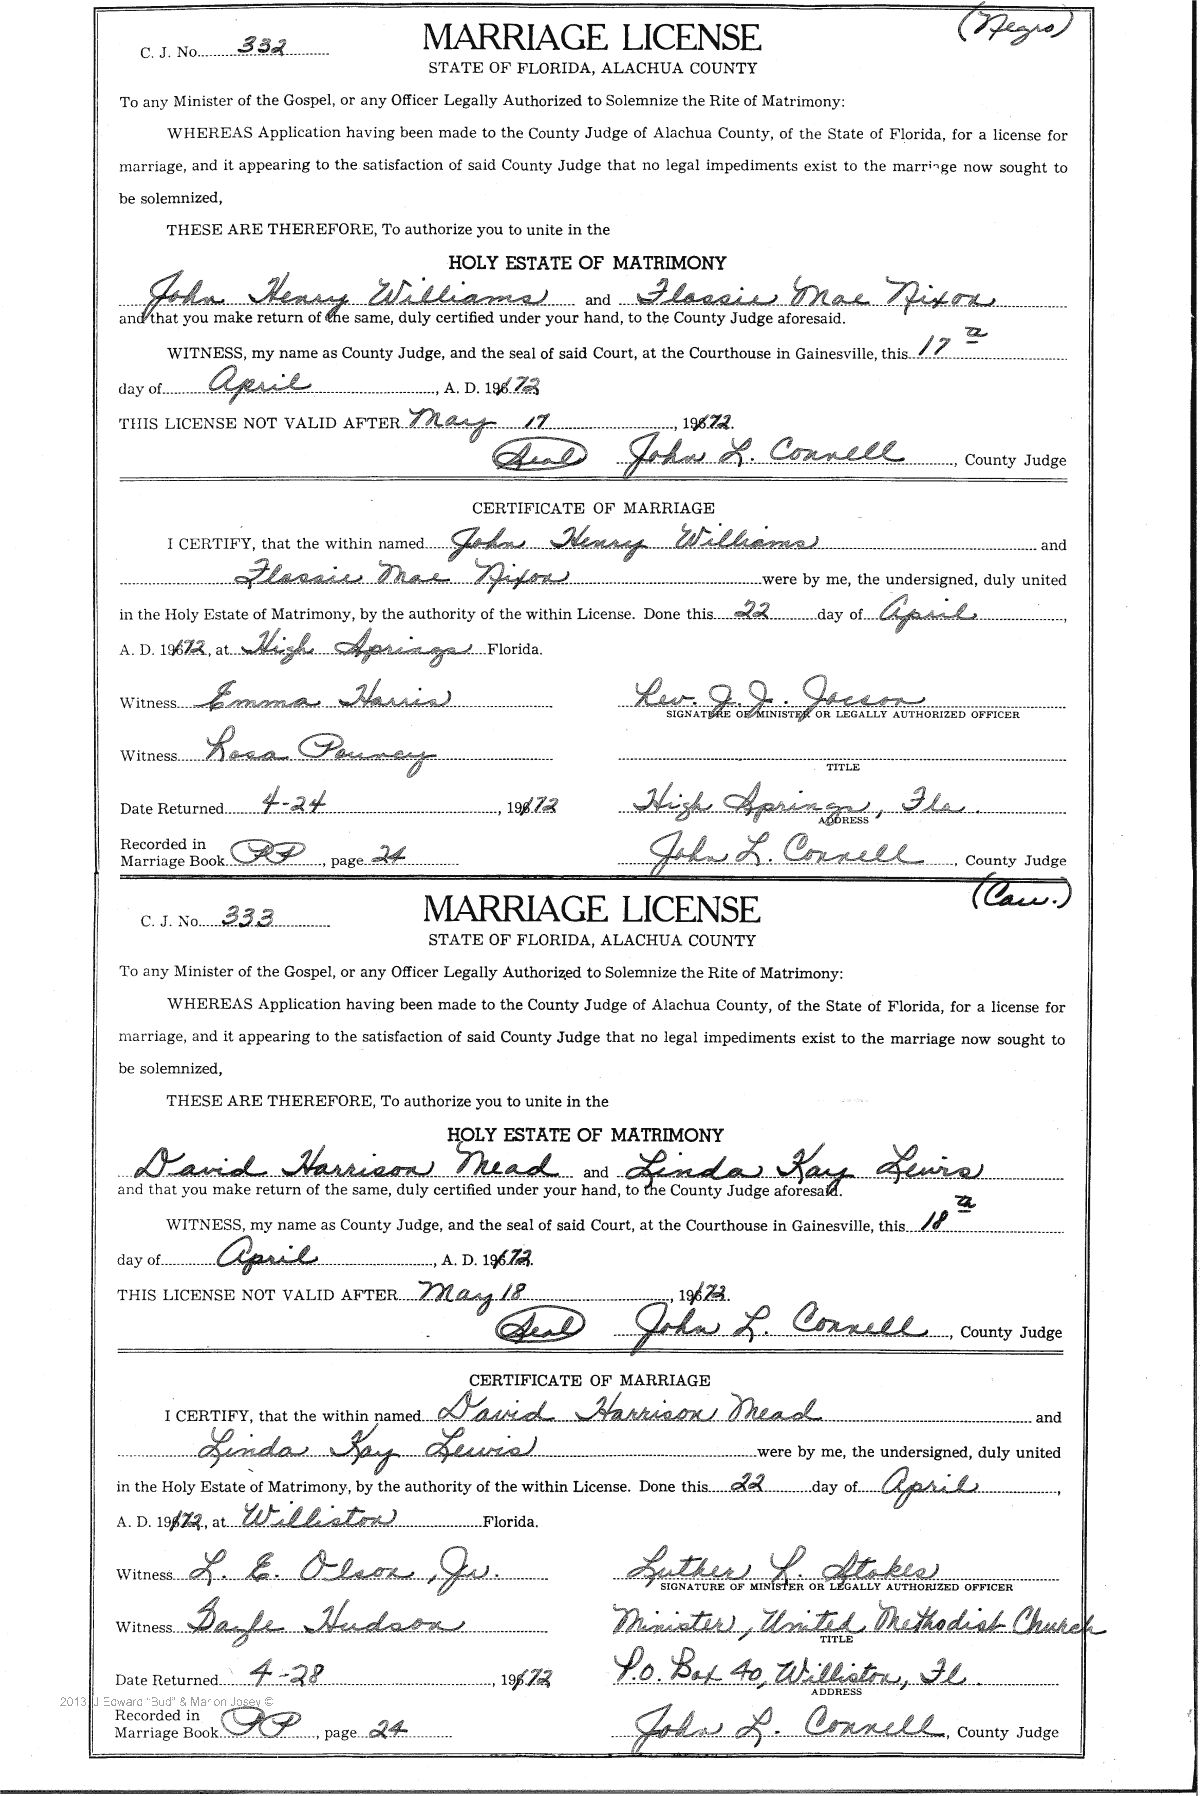 (Negro)
C. J. No. 332 MARRIAGE LICENSE
STATE OF FLORIDA, ALACHUA COUNTY
To any Minister of the Gospel, or any Officer Legally Authorized to Solemnize the Rite of Matrimony:
WHEREAS Application having been made to the County Judge of Alachua County, of the State of Florida, for a license for
marriage, and it appearing to the satisfaction of said County Judge that no legal impediments exist to the marriage now sought to
be solemnized,
THESE ARE THEREFORE, To authorize you to unite in the
HOLY ESTATE OF MATRIMONY
John Henry Williams and Flossie Mae Nixon
and that you make return of the same, duly certified under your hand, to the County Judge aforesaid.
WITNESS, my name as County Judge, and the seal of said Court, at the Courthouse in Gainesville, this 17th
day of April, A. D. 1972
THIS LICENSE NOT VALID AFTER May 17, 1972.
Seal John L. Connell, County Judge
CERTIFICATE OF MARRIAGE
I CERTIFY, that the within named John Henry Williams and
Flossie Mae Nixon were by me, the undersigned, duly united
in the Holy Estate of Matrimony, by the authority of the within License. Done this 22 day of April,
A. D. 1972, at High Springs Florida.
Witness Emma Harris Rev. J. J.
SIGNATURE OF MINISTER OR LEGALLY AUTHORIZED OFFICER
Witness Rosa Pouncy
TITLE
Date Returned 4-24, 1972 High Springs, Fla.
ADDRESS
Recorded in
Marriage Book PP, page 24 John L. Connell, County Judge
(Cau.)
C. J. No. 333 MARRIAGE LICENSE
STATE OF FLORIDA, ALACHUA COUNTY
To any Minister of the Gospel, or any Officer Legally Authorized to Solemnize the Rite of Matrimony:
WHEREAS Application having been made to the County Judge of Alachua County, of the State of Florida, for a license for
marriage, and it appearing to the satisfaction of said County Judge that no legal impediments exist to the marriage now sought to
be solemnized,
THESE ARE THEREFORE, To authorize you to unite in the
HOLY ESTATE OF MATRIMONY
David Harrison Mead and Linda Kay Lewis
and that you make return of the same, duly certified under your hand, to the County Judge aforesaid.
WITNESS, my name as County Judge, and the seal of said Court, at the Courthouse in Gainesville, this 18th
day of April, A. D. 1972.
THIS LICENSE NOT VALID AFTER May 18, 1972.
Seal John L. Connell, County Judge
CERTIFICATE OF MARRIAGE
I CERTIFY, that the within named David Harrison Mead and
Linda Kay Lewis were by me, the undersigned, duly united
in the Holy Estate of Matrimony, by the authority of the within License. Done this 22 day of April,
A. D. 1972, at Williston Florida.
Witness L. E. Olson, Jr. Luther L. Stokes
SIGNATURE OF MINISTER OR LEGALLY AUTHORIZED OFFICER
Witness Gayle Hudson Minister, United Methodist Church
TITLE
Date Returned 4-28, 1972 P.O. Box 40, Williston, Fl.
ADDRESS
2013 J Edward "Bud" & Marion Josey ©
Recorded in
Marriage Book PP, page 24 John L. Connell, County Judge